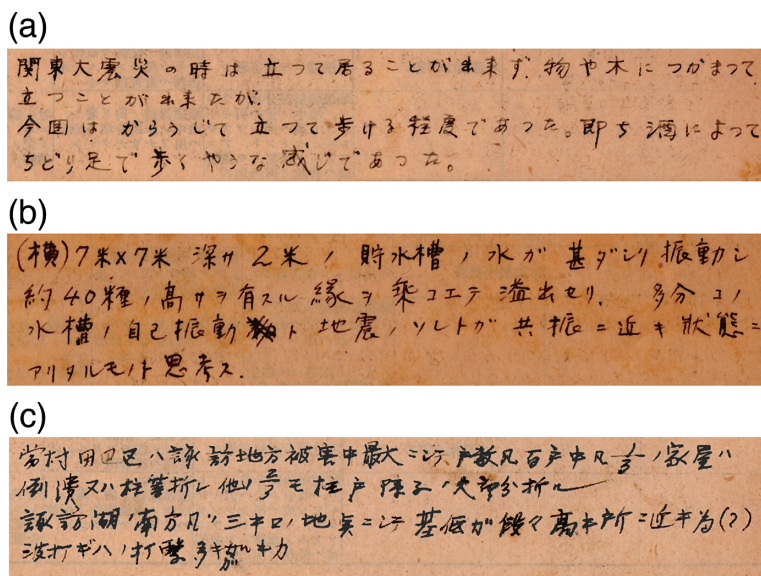 (a)
関東大震災の時は立つて居ることが出来ず.物や木につかまつて
立つことが出来たが.
今回はからうじて立つて歩ける程度であつた。即ち酒によつて
ちどり足で歩くやうな感じであつた。
(b)
(横)7米×7米 深サ2米ノ貯水槽ノ水ガ甚ダシク振動シ
約40糎ノ高サヲ有スル縁ヲ乗コエテ溢出セリ. 多分コノ
水槽ノ自己振動ト地震ノソレトガ共振ニ近キ状態ニ
アリタルモノト思考ス.
(c)
当村田辺区ハ諏訪地方被害中最大ニシテ戸数凡百戸中凡1/3ノ家屋ハ
倒潰又ハ柱等折レ他ノ2/3モ柱戸障子ノ大部分折ル
諏訪湖ノ南方凡ソ三キロノ地点ニシテ基低が段々高キ所ニ近キ為(?)
波打ギハノ打撃